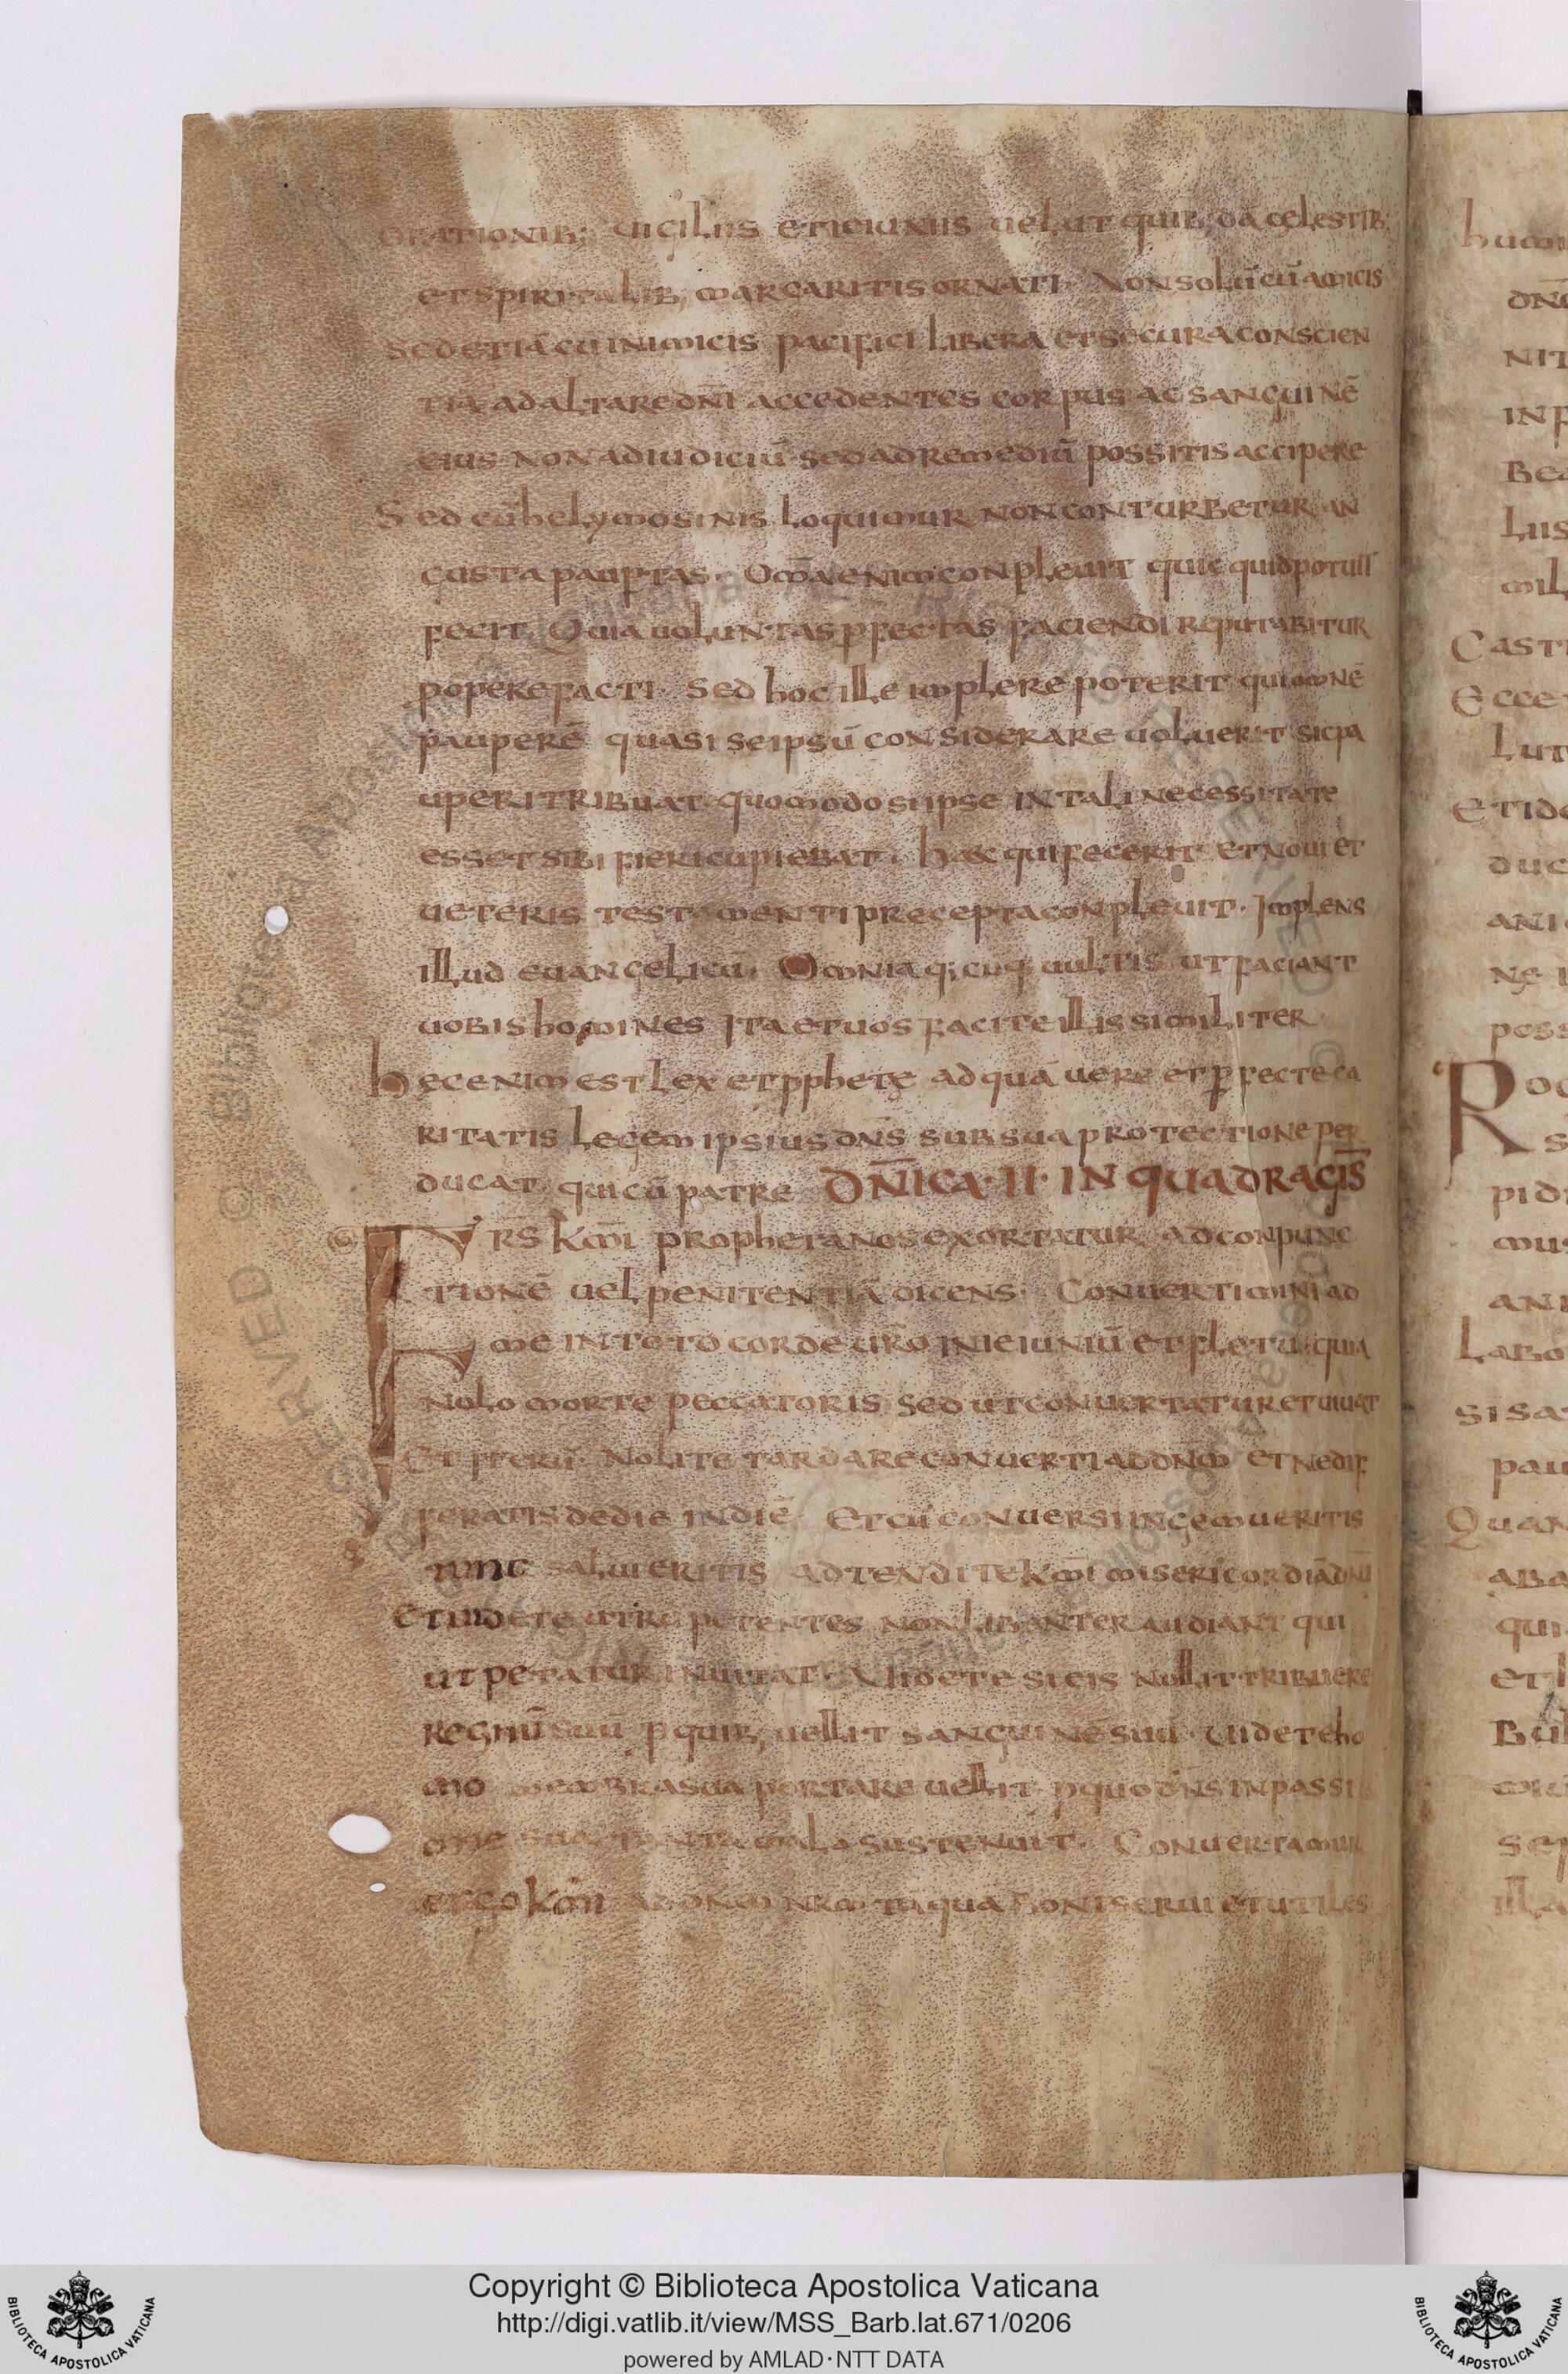 orationib; uigiliis et ieiuniis uelut quib;dā cęlestib;
et spiritalib; margaritis ornati· Non solū cū amicis
sed etiā cū inimicis pacifici libera et secura conscien
tia ad altare dn̄i accedentes corpus ac sanguinē
eius non ad iudiciū sed ad remediū possitis accipere
Sed cū helymosinis loquimur non conturbetur an
gusta paup̱tas· Om̄a enim conpleuit quicquid potuit
fecit Quia uoluntas p̱fectas faciendi reputabitur
p̱ opere facti· Sed hoc ille implere poterit qui omnē
pauperē quasi seipsū considerare uoluerit sic pa
uperi tribuat quomodo si ipse in tali necessitate
esset sibi fieri cupiebat· haec qui fecerit et noui et
ueteris testamenti precepta conpleuit· Implens
illud euangelicū· Omnia q;cūq; uultis ut faciant
uobis homines Ita et uos facite illis similiter
hęc enim est lex et p̱phetę ad quā uere et p̱fecte ca
ritatis legem ipsius dn̄s sub sua protectione per
ducat qui cū patre Dn̄ica· II· in quadragis̄
Frs̄ km̄i propheta nos exortatur ad conpunc
tionē uel penitentiā dicens· Conuertimini ad
me in toto corde ur̄o In ieiuniū et fletu· quia
nolo morte peccatoris sed ut conuertatur et uiuat
Et Iterū· Nolite tardare conuerti ad dn̄m et ne dif
feratis de die in diē Et cū conuersi ingemueritis
tunc salui eritis adtendite km̄i misericordiā dn̄i
Et uidete utrū petentes non libenter audiant qui
ut petatur inuitat· Uidete si eis nollit tribuere
regnū suū p̱ quib; uellit sanguinē suū· Uidete ho
mo membra sua portare uellit p̱ quo dn̄s in passi
one sua tanta mala sustenuit· Conuertamur
ergo km̄i ad dn̄m nr̄m tāquā boni serui et utiles
Copyright © Biblioteca Apostolica Vaticana
http://digi.vatlib.it/view/MSS_Barb.lat.671/0206
powered by AMLAD·NTT DATA